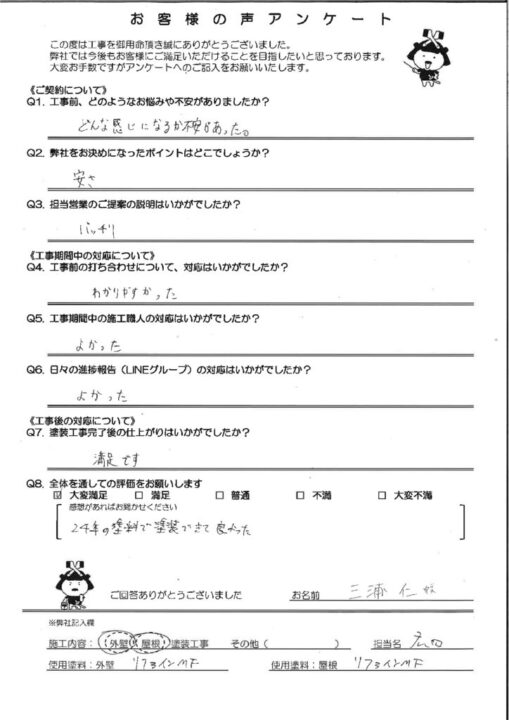 お客様の声アンケート
この度は工事を御用命頂き誠にありがとうございました。
弊社では今後もお客様にご満足いただけることを目指したいと思っております。
大変お手数ですがアンケートへのご記入をお願いいたします。
《ご契約について》
Q1. 工事前、どのようなお悩みや不安がありましたか？
どんな感じになるか不安があった。
Q2. 弊社をお決めになったポイントはどこでしょうか？
安さ
Q3. 担当営業のご提案の説明はいかがでしたか？
バッチリ
《工事期間中の対応について》
Q4. 工事前の打ち合わせについて、対応はいかがでしたか？
わかりやすかった
Q5. 工事期間中の施工職人の対応はいかがでしたか？
よかった
Q6. 日々の進捗報告（LINEグループ）の対応はいかがでしたか？
よかった
《工事後の対応について》
Q7. 塗装工事完了後の仕上がりはいかがでしたか？
満足です
Q8. 全体を通しての評価をお願いします
☑ 大変満足 □ 満足 □ 普通 □ 不満 □ 大変不満
感想があればお聞かせください
24年の塗料で塗装できて良かった
ご回答ありがとうございました お名前 三浦 仁 様
※弊社記入欄
施工内容：外壁・屋根 塗装工事 その他（ ） 担当名
使用塗料：外壁 リファインMF 使用塗料：屋根 リファインMF